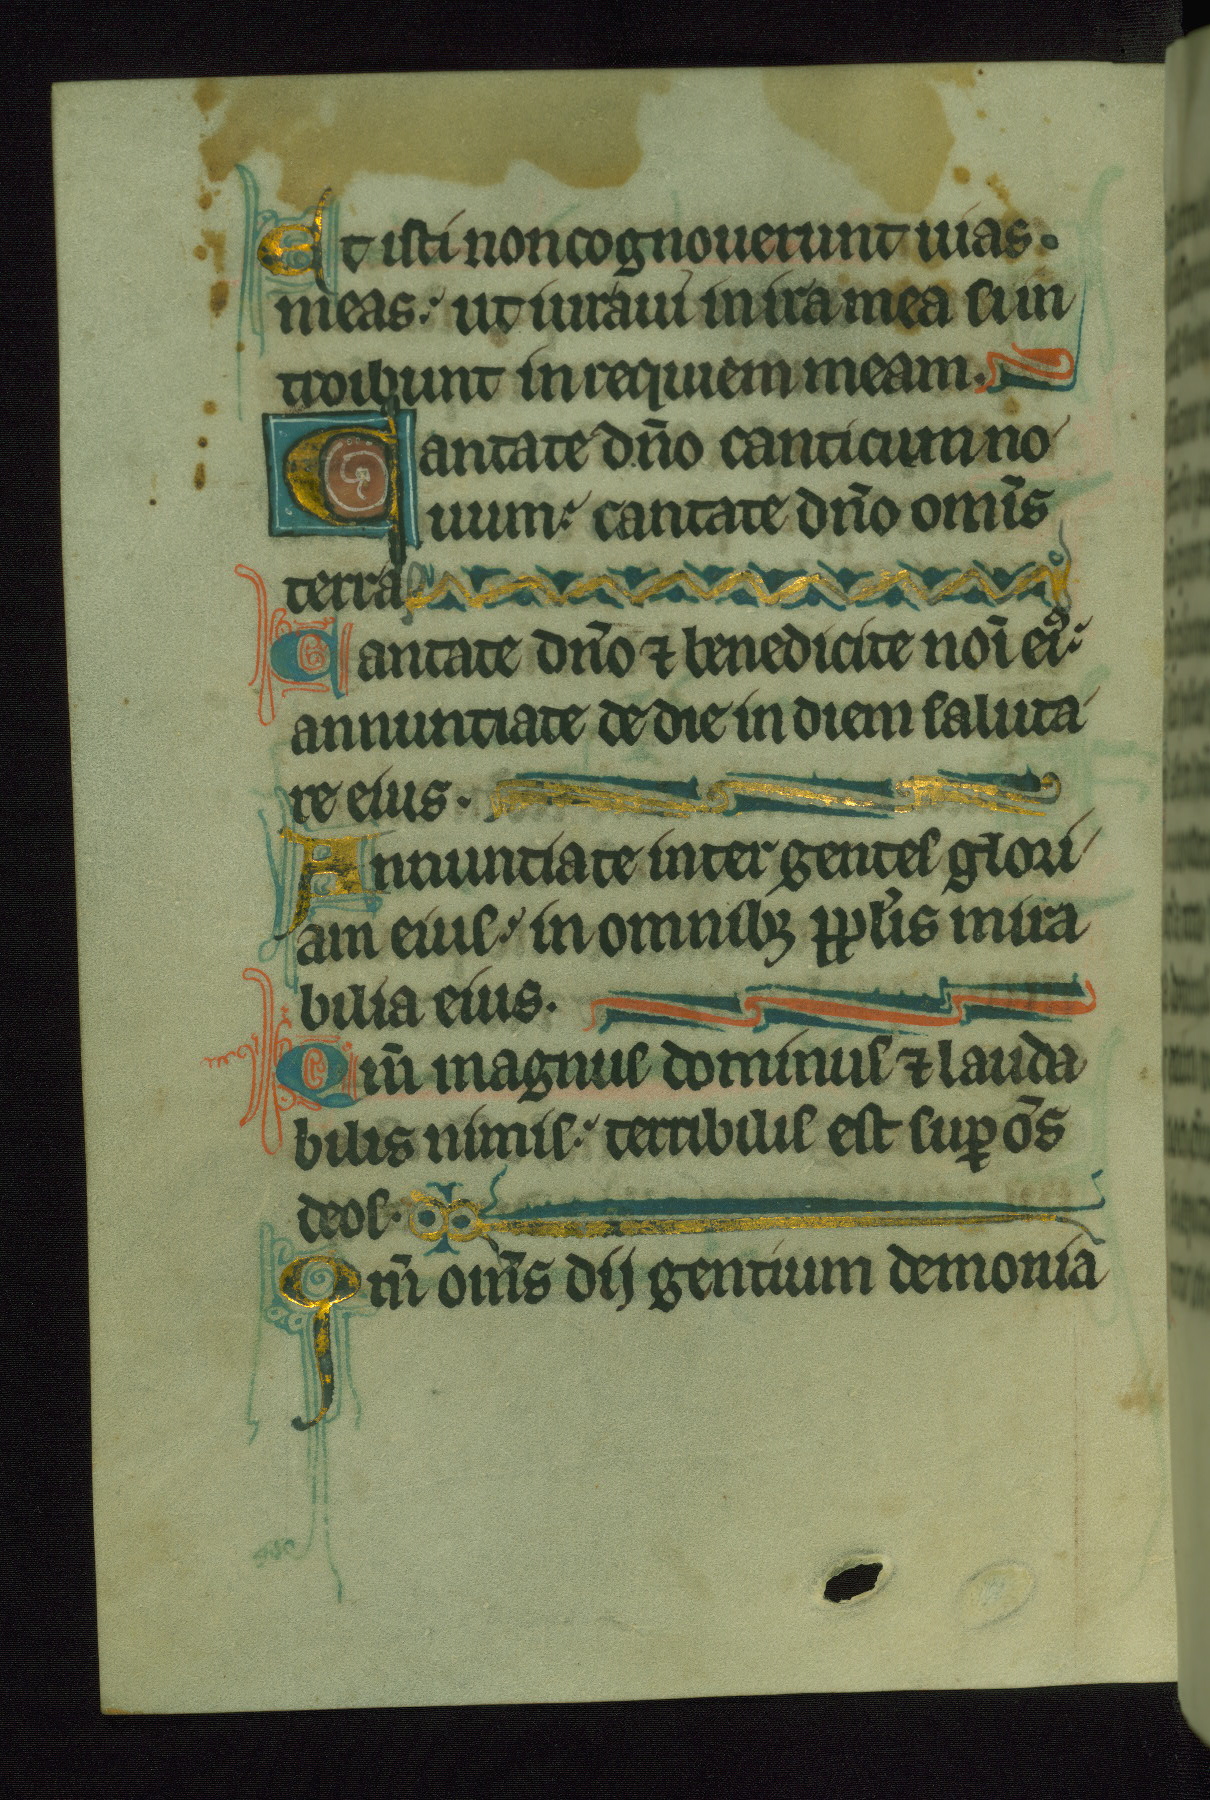 Et isti non cognouerunt uias.
meas: ut iuraui in ira mea si in
troibunt in requiem meam.
Cantate dn̄o canticum no
uum: cantate dn̄o om̄is
terra
Cantate dn̄o ⁊ benedicite noī eiꝰ:
annuntiate de die in diem saluta
re eius.
Annuntiate inter gentes glori
am eius: in omnibꝫ pp̄lis mira
bilia eius.
Qm̄ magnus dominus ⁊ lauda
bilis nimis: terribilis est suꝑ ōs
deos.
Qm̄ om̄s dij gentium demonia